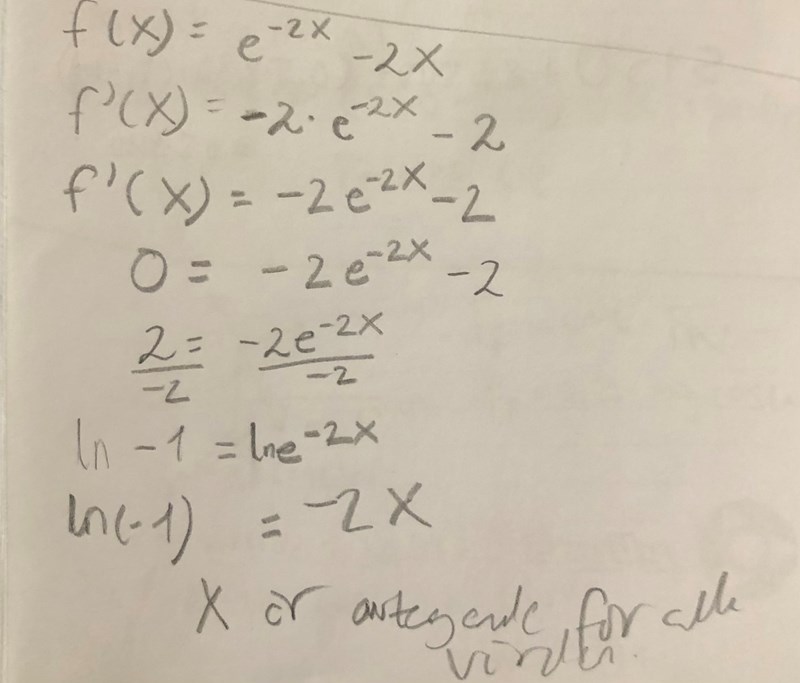 f(x) = e^{-2x} - 2x
f'(x) = -2 · e^{-2x} - 2
f'(x) = -2e^{-2x} - 2
0 = -2e^{-2x} - 2
\frac{2}{-2} = \frac{-2e^{-2x}}{-2}
ln -1 = ln e^{-2x}
ln(-1) = -2x
X är för alla